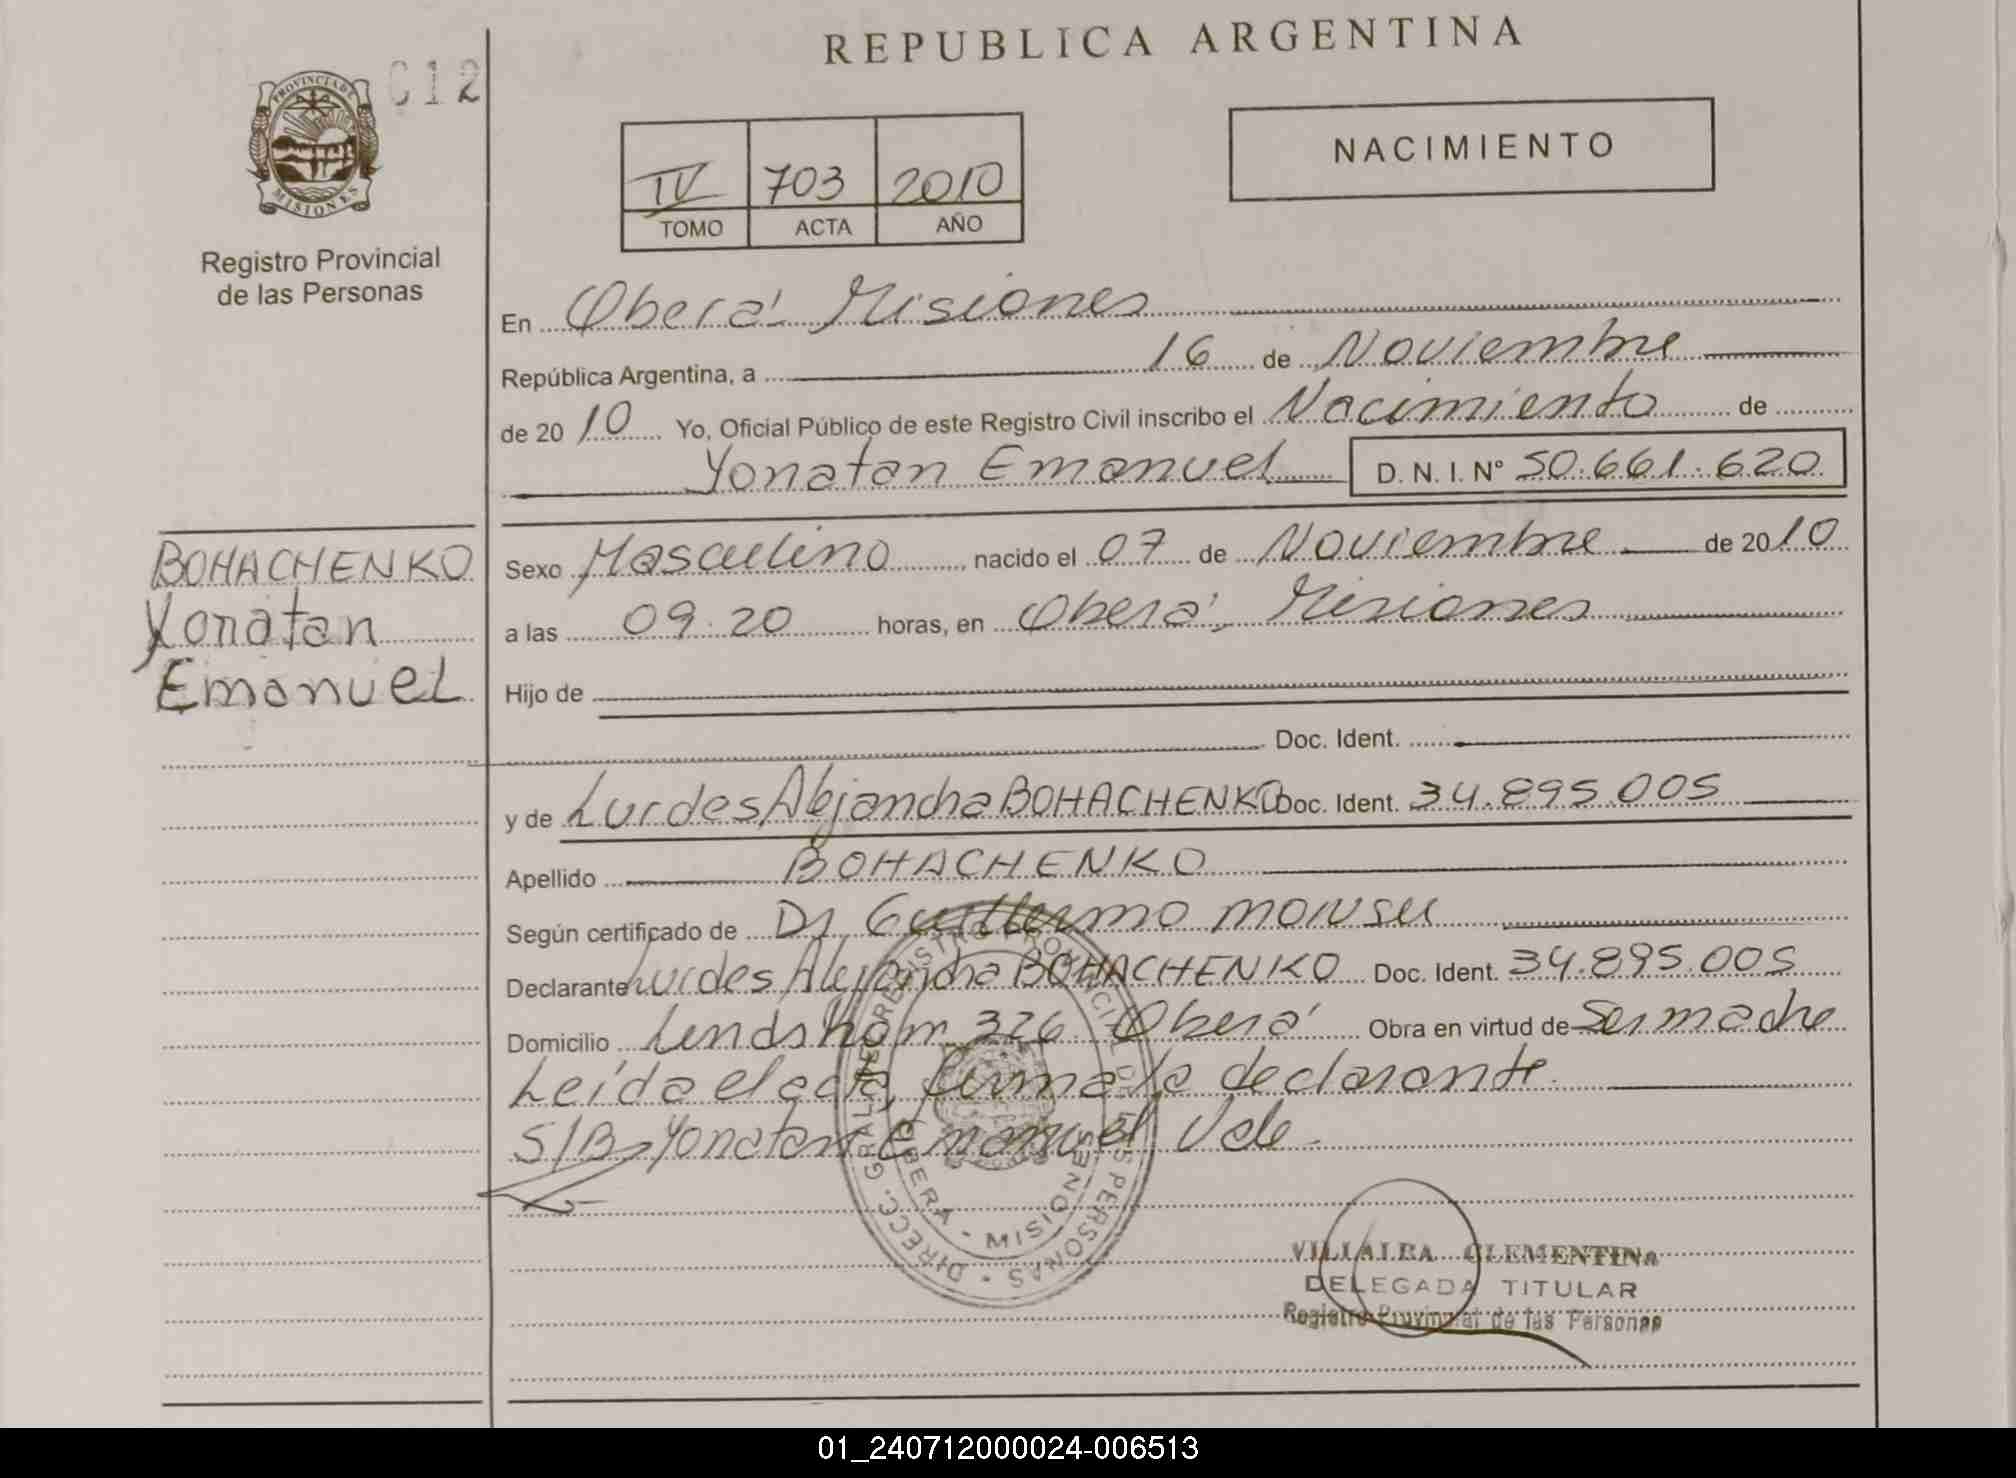 REPUBLICA ARGENTINA
C12
PROVINCIA DE
MISIONES
Registro Provincial
de las Personas
IV 703 2010
TOMO ACTA AÑO
NACIMIENTO
En Oberá Misiones
República Argentina, a 16 de Noviembre
de 2010 Yo, Oficial Público de este Registro Civil inscribo el Nacimiento de
Yonatan Emanuel D. N. I. N° 50.661.620
BOHACHENKO
Yonatan
Emanuel
Sexo Masculino, nacido el 07 de Noviembre de 2010
a las 09.20 horas, en Oberá, Misiones
Hijo de
Doc. Ident.
y de Lurdes Alejandra BOHACHENKO Doc. Ident. 34.895.005
Apellido BOHACHENKO
Según certificado de Dr Guillermo Monsu
Declarante Lurdes Alejandra BOHACHENKO Doc. Ident. 34.895.005
Domicilio 326 Oberá Obra en virtud de Ser madre
Leída el acta, firma la declarante.
S/B Yonatan Emanuel Vale.
DIRECC. GRAL. DE REGISTRO PROVINCIAL DE LAS PERSONAS
OBERA - MISIONES
VILLALBA CLEMENTINA
DELEGADA TITULAR
Registro Provincial de las Personas
01_240712000024-006513